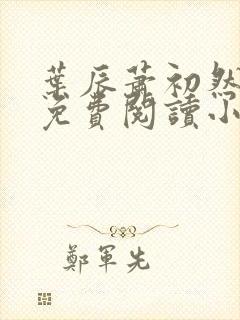 葉辰蕭初然
免費閱讀小
鄭軍先